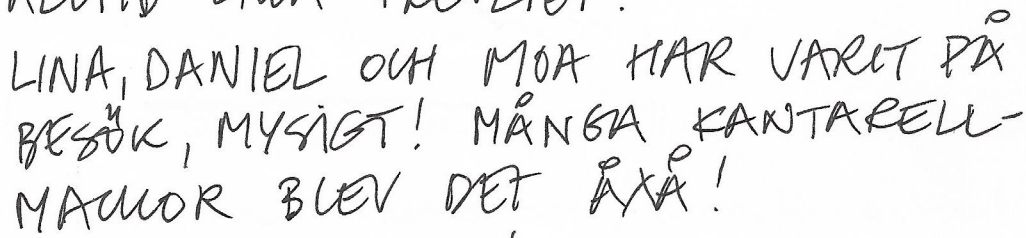 LINA, DANIEL OCH MOA HAR VARIT PÅ
BESÖK, MYSIGT! MÅNGA KANTARELL-
MACKOR BLEV DET ÅXÅ!